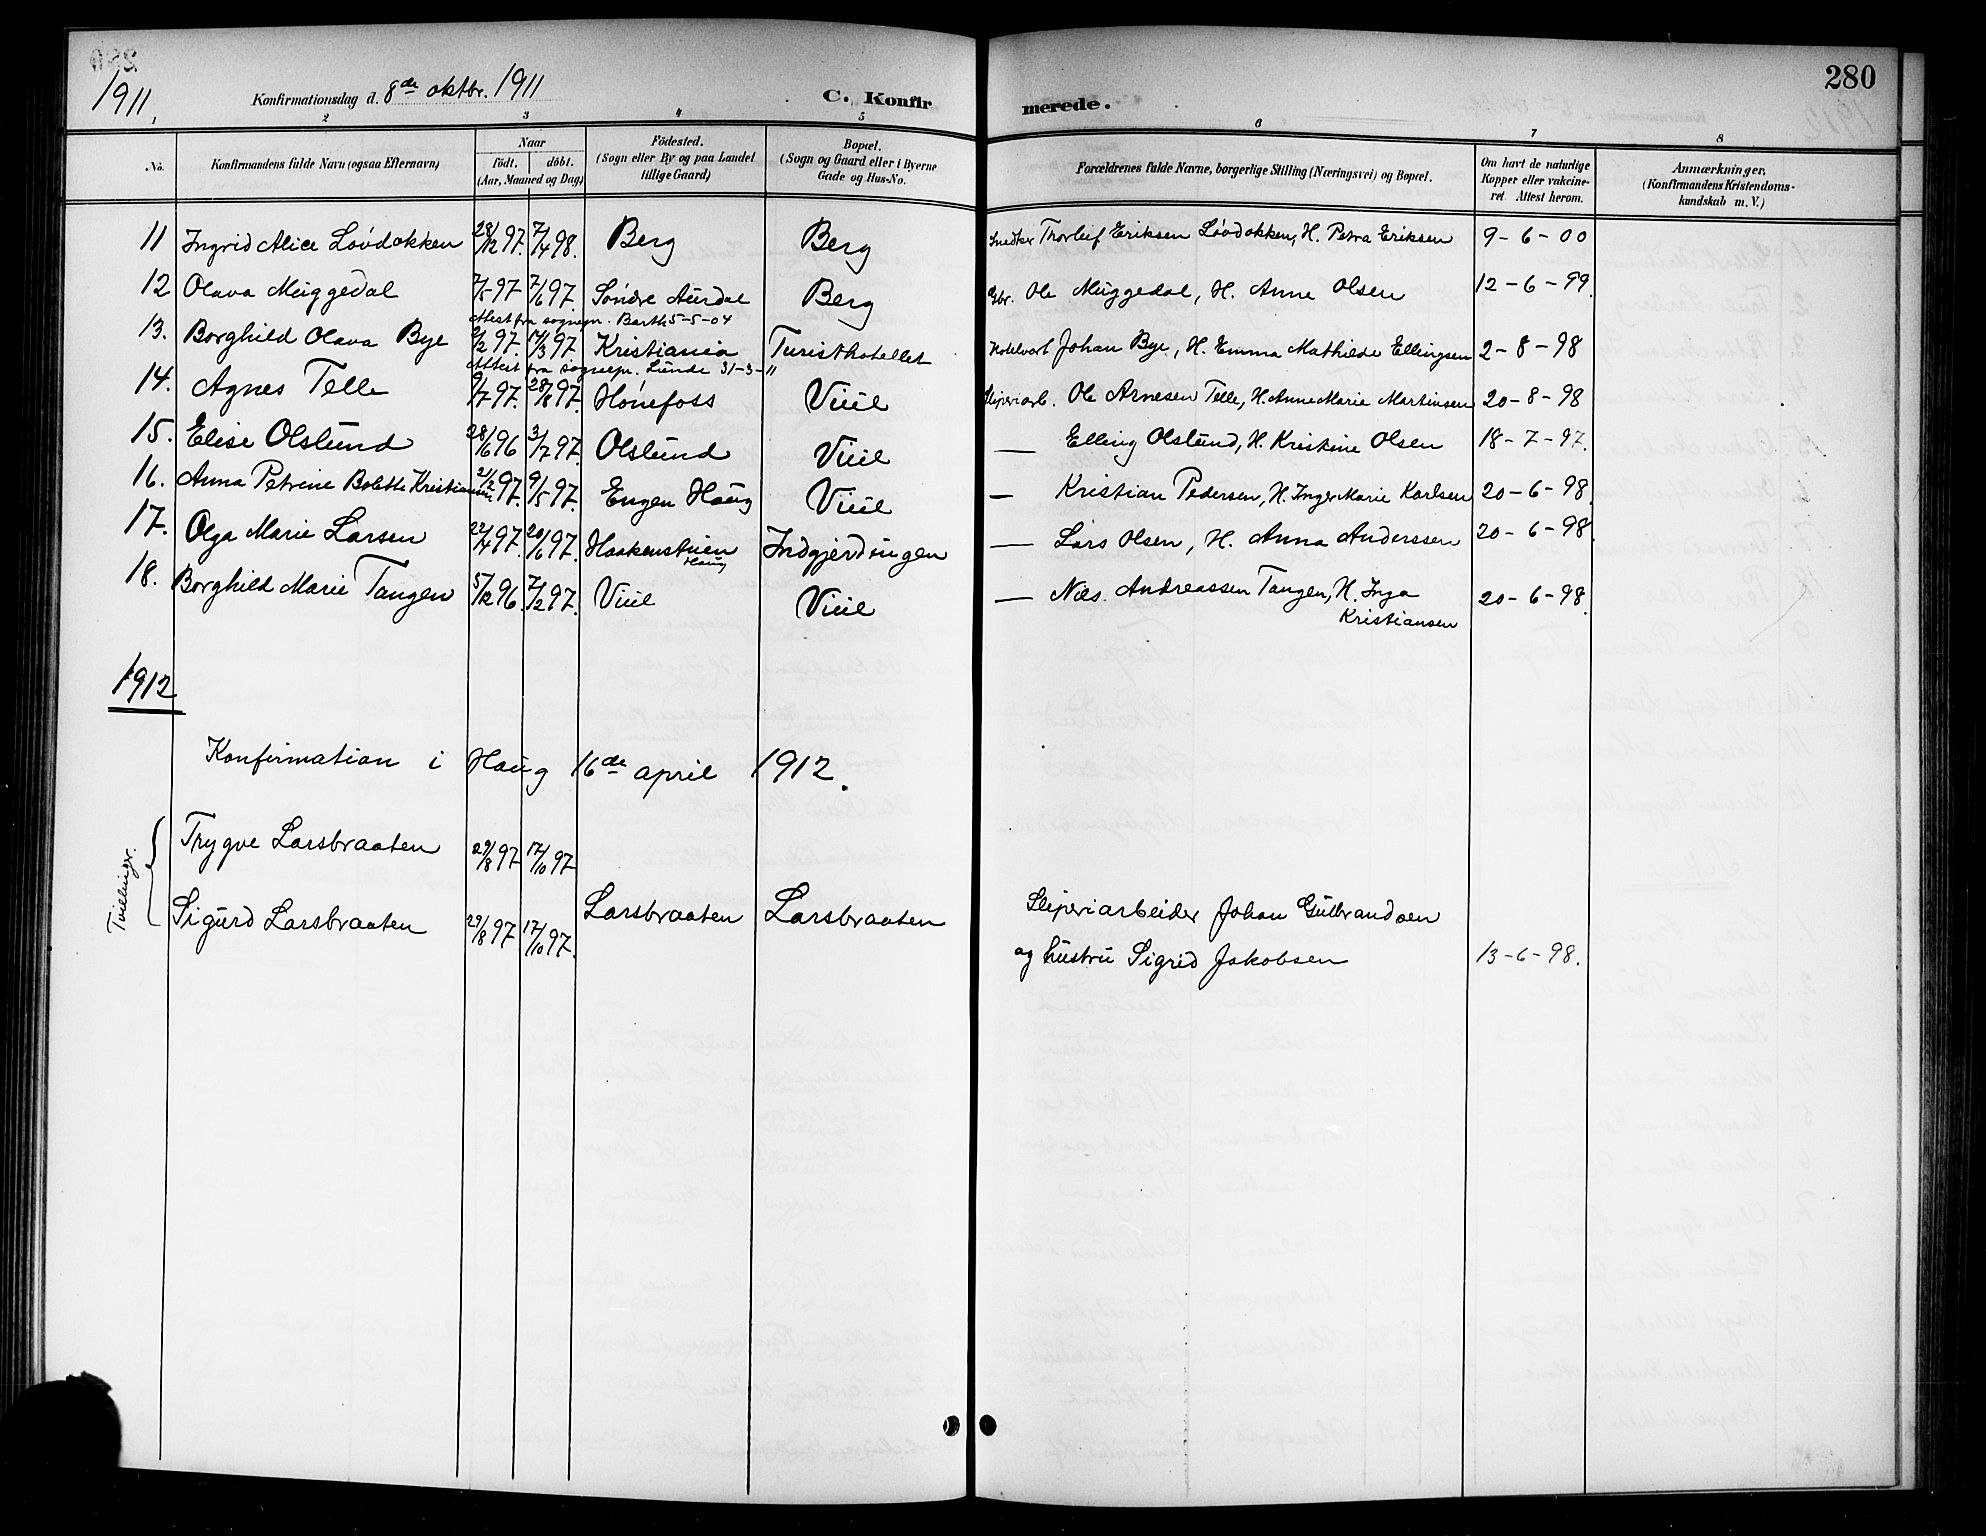 1911,
Konfirmationsdag d. 8de oktbr. 1911
C. Konfirmerede.
280
2 3 4 5 6 7 8
No.
Konfirmandens fulde Navn (ogsaa Efternavn)
Naar
födt. döbt.
(Aar, Maaned og Dag)
Födested.
(Sogn eller By og paa Landet
tillige Gaard)
Bopæl.
(Sogn og Gaard eller i Byerne
Gade og Hus-No.
Forældrenes fulde Navne, borgerlige Stilling (Næringsvei) og Bopæl.
Om havt de naturlige
Kopper eller vakcine-
ret Attest herom.
Anmærkninger,
(Konfirmandens Kristendoms-
kundskab m. V.)
11 Ingrid Alice Lövdokken 28/12 97. 7/4 98. Berg Berg Snedker Thorleif Eriksen Lövdokken, H. Petra Eriksen 9-6-00
12 Olava Muggedal 7/5 97 7/6 97 Söndre Aurdal Berg Gbr. Ole Muggedal, H. Anne Olsen 12-6-99.
Attest fra sognepr. Barth 5-5-04
13. Borghild Olava Bye 2/2 97. 14/3 97 Kristiania Turisthotellet Hotelvært Johan Bye, H. Emma Mathilde Ellingsen 2-8-98
Attest fra sognepr. Lunde 31-3-11
14. Agnes Telle 9/7 97. 28/8 97. Hönefoss Viul Sliperiarb. Ole Arnesen Telle, H. Anne Marie Martinsen 20-8-98
15. Elise Olslund 28/6 96 3/7 97. Olslund Viul — Elling Olslund, H. Kristine Olsen 18-7-97.
16. Anna Petrine Bolette Kristiansen 21/2 97. 9/5 97. Engen Haug Viul — Kristian Pedersen, H. Inger Marie Karlsen 20-6-98.
17. Olga Marie Larsen 22/4 97. 20/6 97. Haakenstuen Indgjerdingen — Lars Olsen, H. Anna Anderssen 20-6-98.
Haug
18. Borghild Marie Tangen 5/12 96. 7/2 97. Viul Viul — Nils Andreassen Tangen, H. Inga 20-6-98.
Kristiansen
1912
Konfirmation i Haug 16de april 1912.
Tvillinger.
Trygve Larsbraaten 29/8 97. 17/10 97
Sigurd Larsbraaten 29/8 97. 17/10 97. Larsbraaten Larsbraaten Sliperiarbeider Johan Gulbrandsen
og hustru Sigrid Jakobsen 13-6-98.